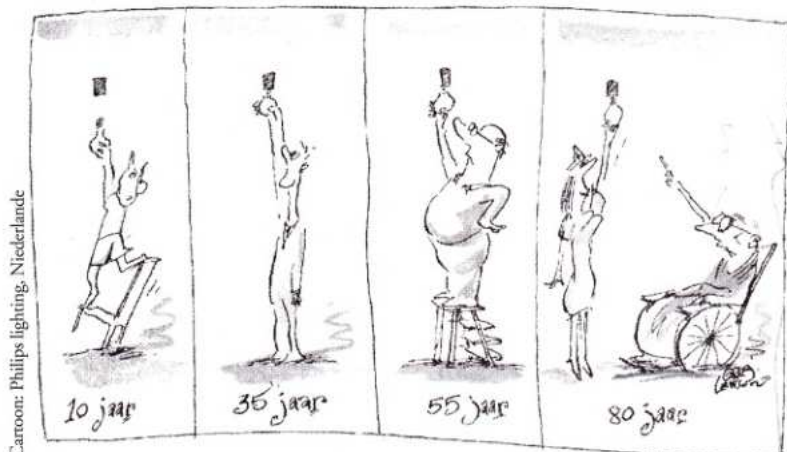 Cartoon: Philips lighting, Niederlande
10 jaar
35 jaar
55 jaar
80 jaar